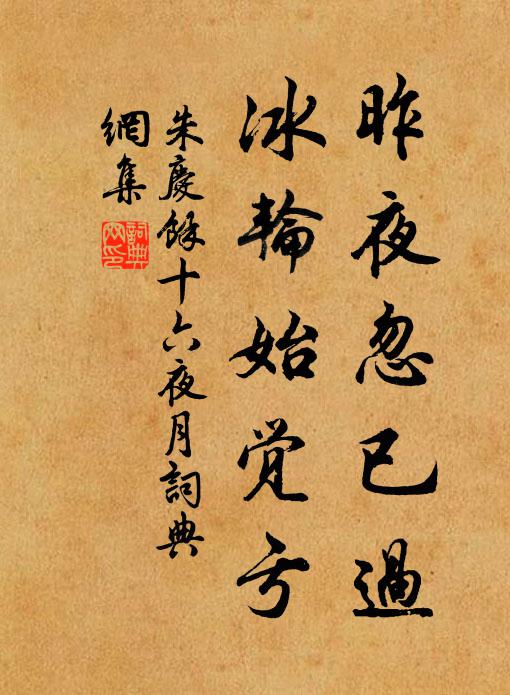 昨夜忽已過
冰輪始觉亏
朱慶餘十六夜月詞典
網集
詞典
网印